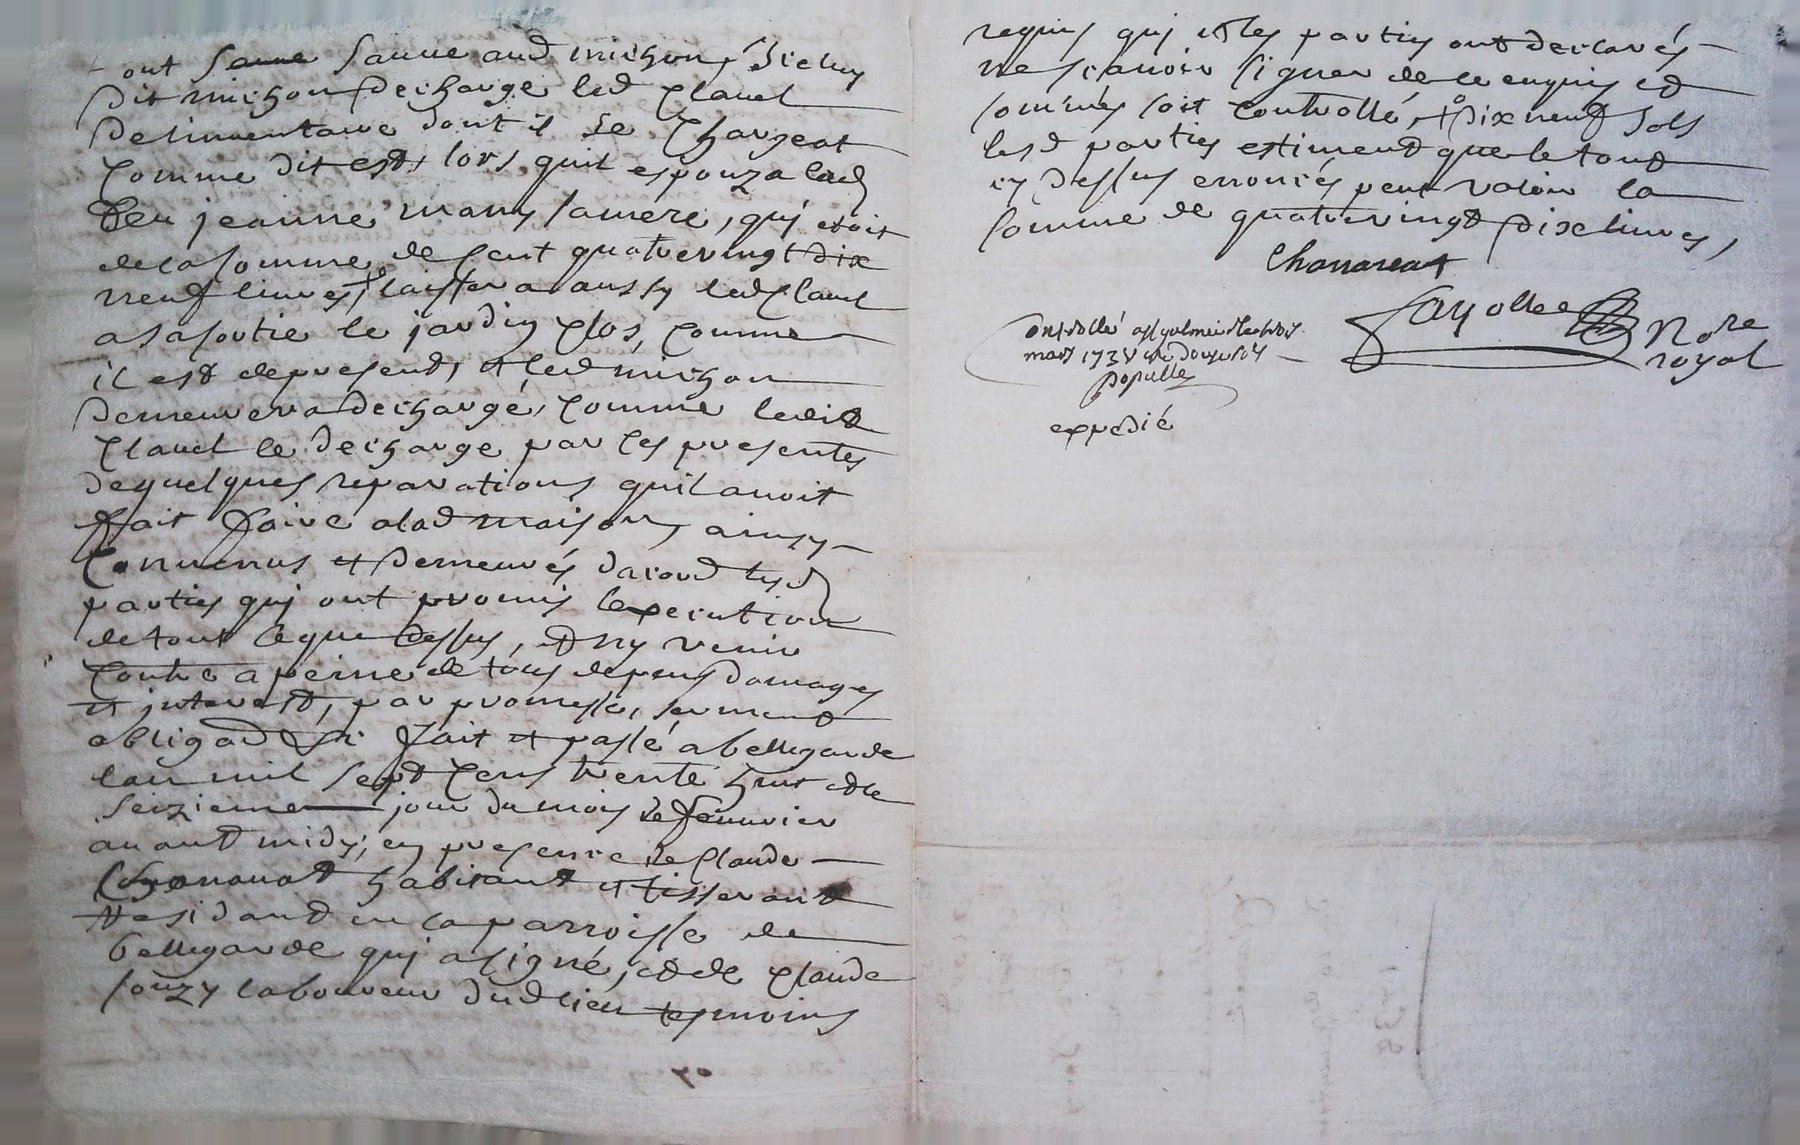 ont sanne sanue aud michon, Iceluy
dit michon decharge led Clauel
delinuentaire dont il se Chargeat
Comme dit est, lors quil espouza lad
feu jeanne many sa mere, qui etoit
de la somme de Cent quatrevingt dix
neuf liures, laissera aussy led Clauel
a sa sortie le jardin Clos, Comme
il est de present, et led michon
demeurera dechargé, Comme ledit
Clauel le decharge par Ces presentes
de quelques reparations quil auoit
fait faire alad maison, ainsy
Conuenus et demeurés dacord lesd
parties qui ont promis lexecution
de tout ce que dessus, et ny venir
Contre a peine de tous depens domages
et interest, par promesse, serment
obligaon fait et passé a bellegarde
lan mil sept Cens trente huit et le
seizieme jour du mois de feurier
auant midy, en presence de Claude
Chonarat habitant et tisserant
residant en la parroisse de
bellegarde qui a signé, et de Claude
souzy laboureur dud lieu tesmoins
requis qui et les parties ont declarés
ne scauoir signer de ce enquis et
sommés soit Controllé, et dix neuf sols
lesd parties estiment que le tout
cy dessus enoncés peut valoir la
somme de quatrevingt dix liures,
Chonarat
Fayolle Nore
royal
Controllé a st galmier le trois
mars 1738 Rc douze sols
Populle
expedié